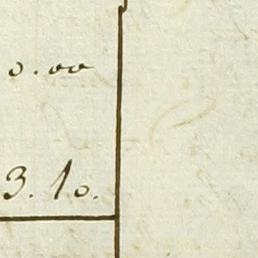 0.00
3.10.